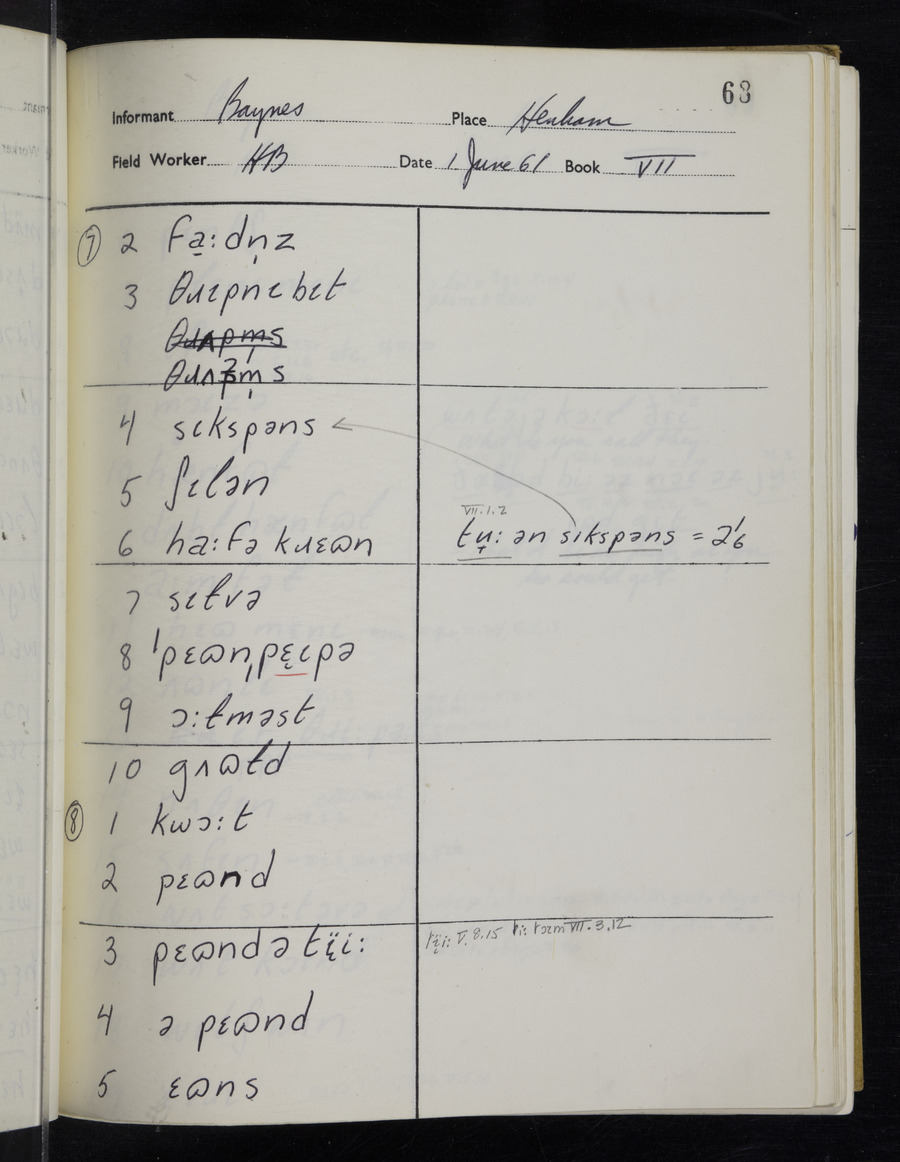 68
Informant Baynes Place Henham
Field Worker HB Date 1 June 61 Book VII
⑦ 2 fa̠:dn̩z
3 θɹɛpnɩ bɩt
θɹʌpm̩s
θɹʌʔm̩s
4 sɩkspəns
5 ʃɩlən
6 ha:fə kɹɛɷn
VII.1.2
tṳ: ən sɩkspəns = 2/6
7 sɛtvə
8 ˈpɛɷn,pɛ̞ɩpə
9 ɔ:tməst
10 gɹʌɷtd
⑧ 1 kwɔ:t
2 pɛɷnd
3 pɛɷnd ə tɪ̈i:
tɪ̈i: V.8.15 ti: tɒɪm VII.3.12
4 ə pɛɷnd
5 ɛɷns